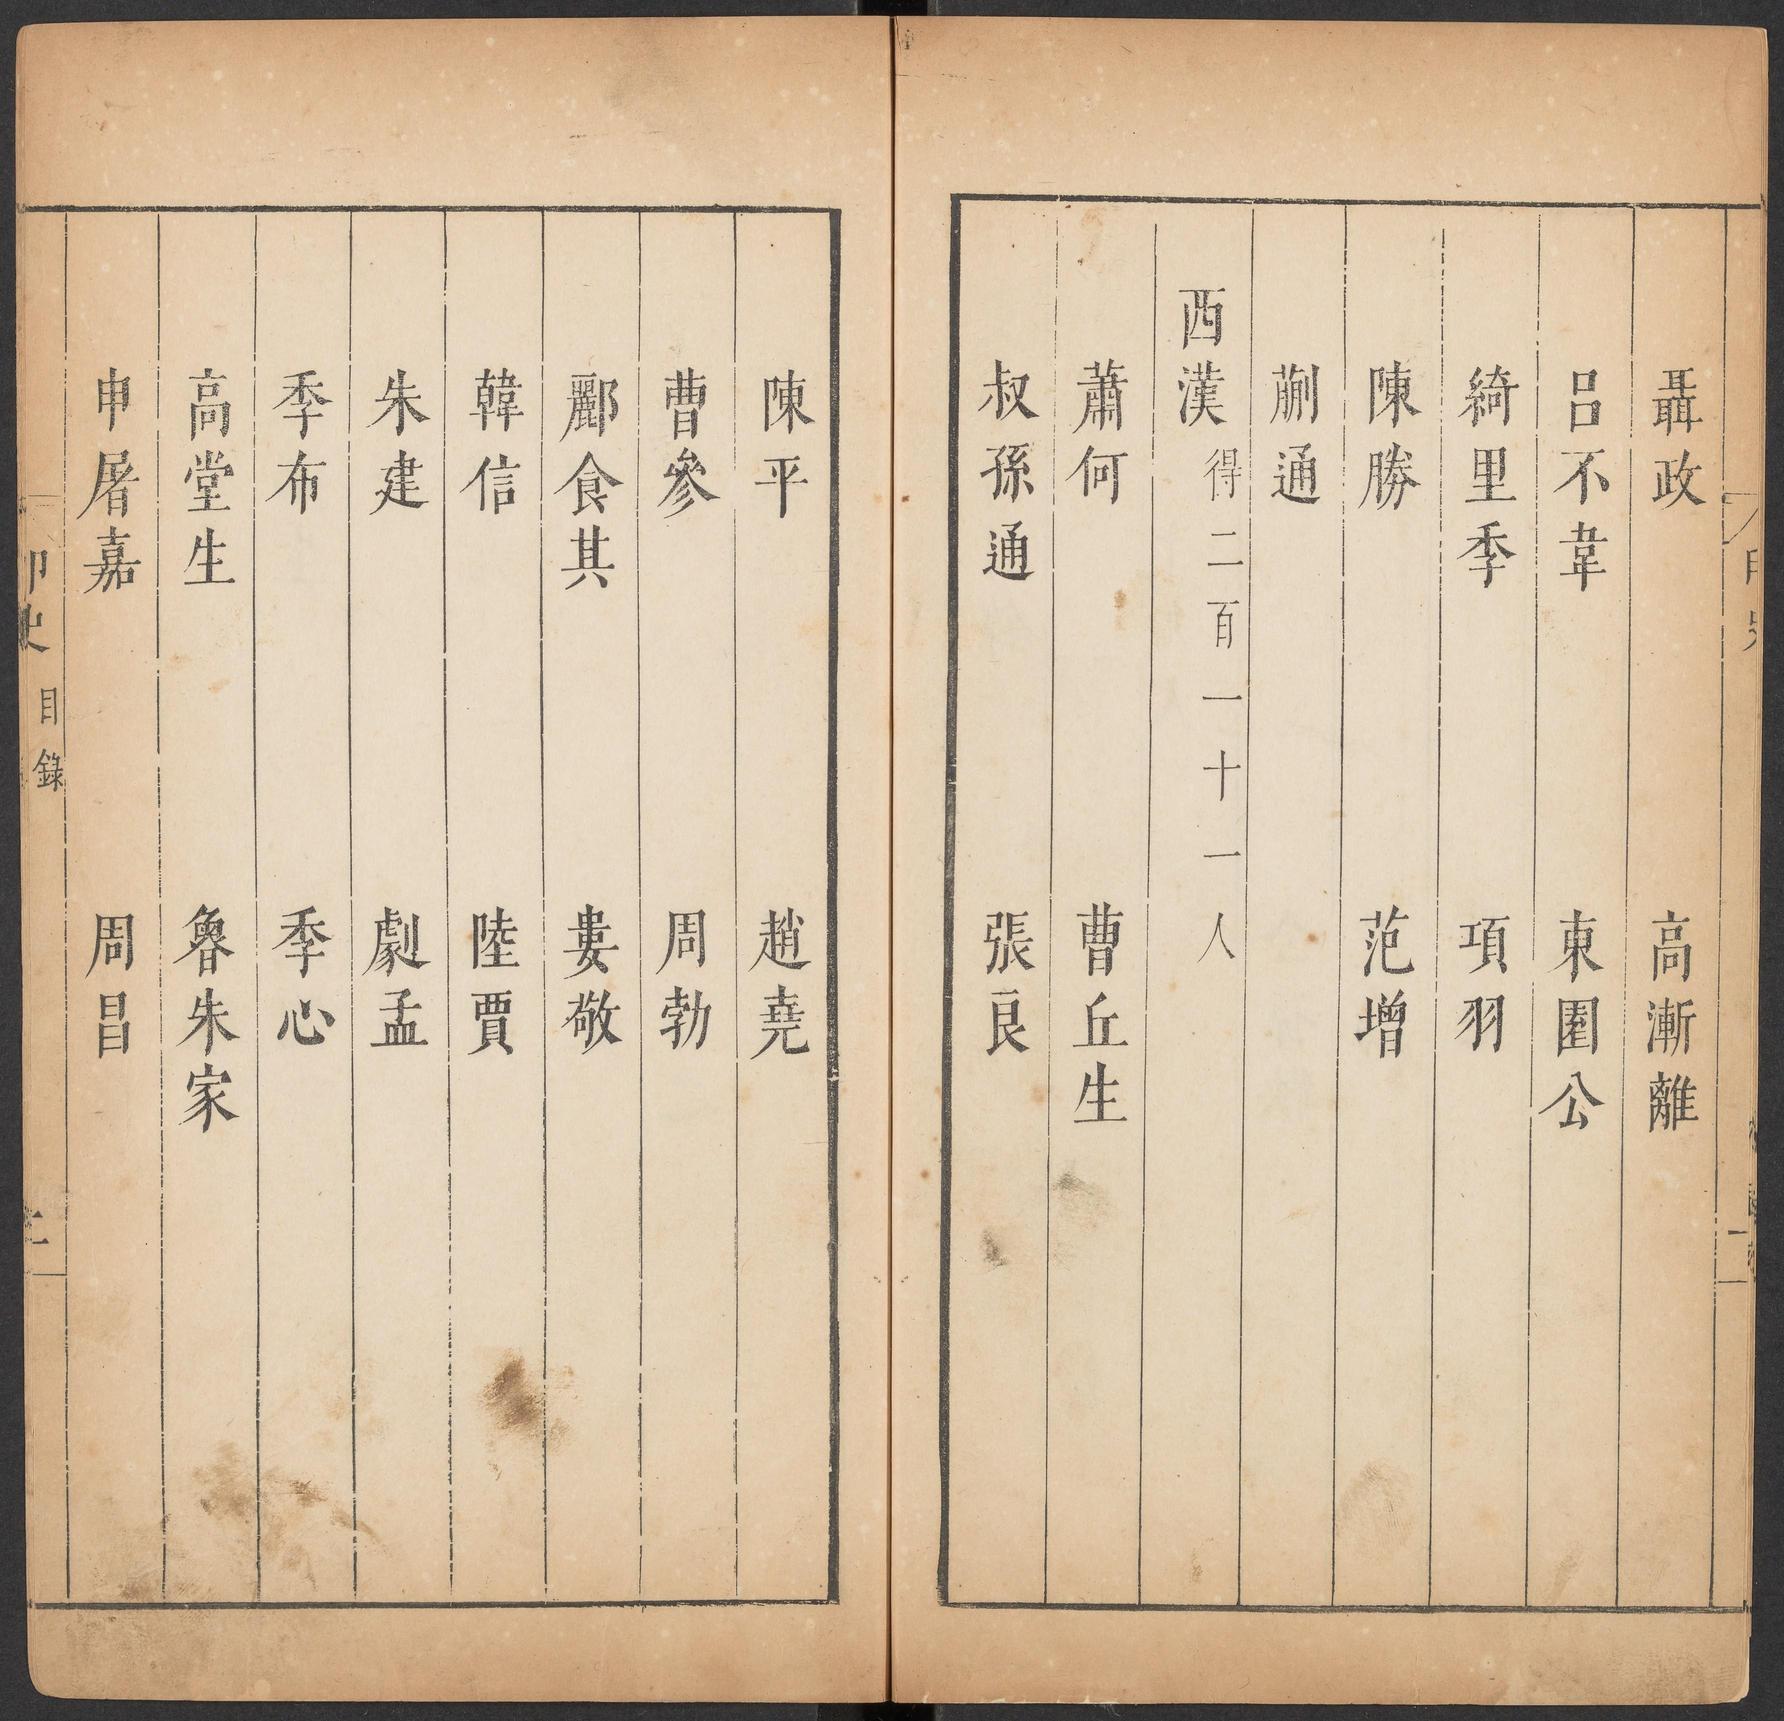 聶政　高漸離
呂不韋　東園公
綺里季　項羽
陳勝　范增
蒯通
西漢 得二百一十一人
蕭何　曹丘生
叔孫通　張良
陳平　趙堯
曹參　周勃
酈食其　婁敬
韓信　陸賈
朱建　劇孟
季布　季心
高堂生　魯朱家
申屠嘉　周昌
印史 目錄